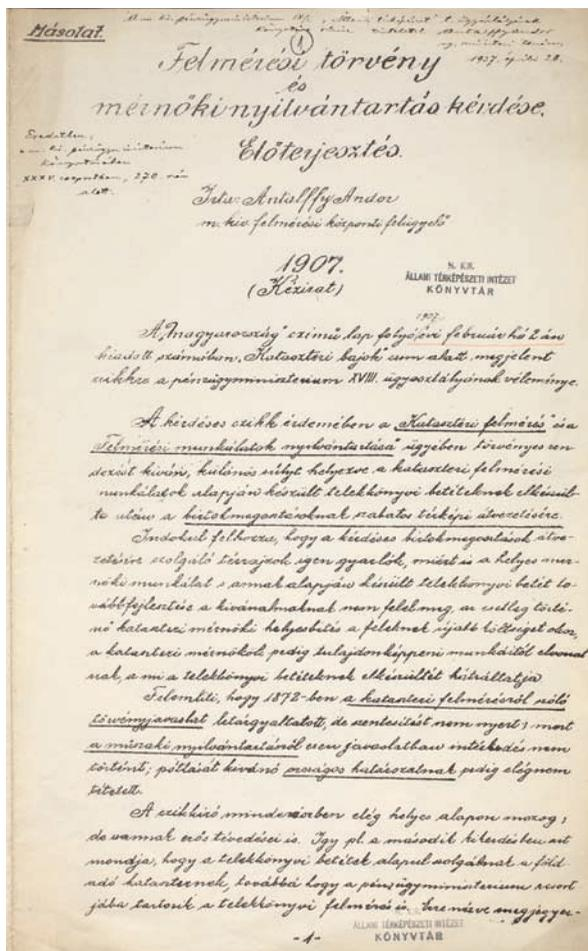 Másolat.
Felmérési törvény
és
mérnöki nyilvántartás kérdése.
Előterjesztés.
Eredetben,
a m. ki. pénzügyministerium
könyvtárában
XXXV. csoportban, 270. szám
alatt.
Irta: Antalffy Andor
m. kir. felmérési központi felügyelő
1907.
(Kézirat)
N. KR.
ÁLLAMI TÉRKÉPÉSZETI INTÉZET
KÖNYVTÁR
1907.
A „Magyarország” czimű lap folyó évi február hó 2-án
kiadott számában „Kataszteri bajok” cum alatt megjelent
czikkre a pénzügyministerium XVIII. ügyosztályának véleménye.
A kérdéses czikk érdemében a „Kataszteri felmérés” és a
„Felmérési munkálatok nyilvántartása” ügyében törvényes ren
dezést kíván, különös súlyt helyezve a kataszteri felmérési
munkálatok alapján készült telekkönyvi betéteknek elkészül-
te után a birtokmegosztásoknak szabatos térképi átvezetésére.
Indokul felhozza, hogy a kérdéses birtokmegosztások átve-
zetésére szolgáló térrajzok igen gyarlók, miért is a helyes mér-
nöki munkálat s annak alapján készült telekkönyvi betét to-
vábbfejlesztése a kívánalmaknak nem felel meg, az esetleg törté-
nő kataszteri mérnöki helyesbítés a feleknek újabb költséget okoz,
a kataszteri mérnököt pedig tulajdonképpeni munkáitól elvonat
nak, a mi a telekkönyvi betéteknek elkészültét hátráltatja.
Felemlíti, hogy 1872-ben a kataszteri felmérésről szóló
törvényjavaslat letárgyaltatott, de szentesítést nem nyert; mert
a műszaki nyilvántartásról ezen javaslatban intézkedés nem
történt; pótlását kívánó országos határozatnak pedig elég nem
tétetett.
A czikkíró mindenesetben elég helyes alapon mozog;
de vannak erős tévedései is. Igy pl. a második kikezdésben azt
mondja, hogy a telekkönyvi betétek alapul szolgálnak a föld
adó kataszternek, továbbá hogy a pénzügyministerium resort
jába tartozik a telekkönyvi felmérés is. Erre nézve megjegyez-
N. KR.
ÁLLAMI TÉRKÉPÉSZETI INTÉZET
KÖNYVTÁR
-1-